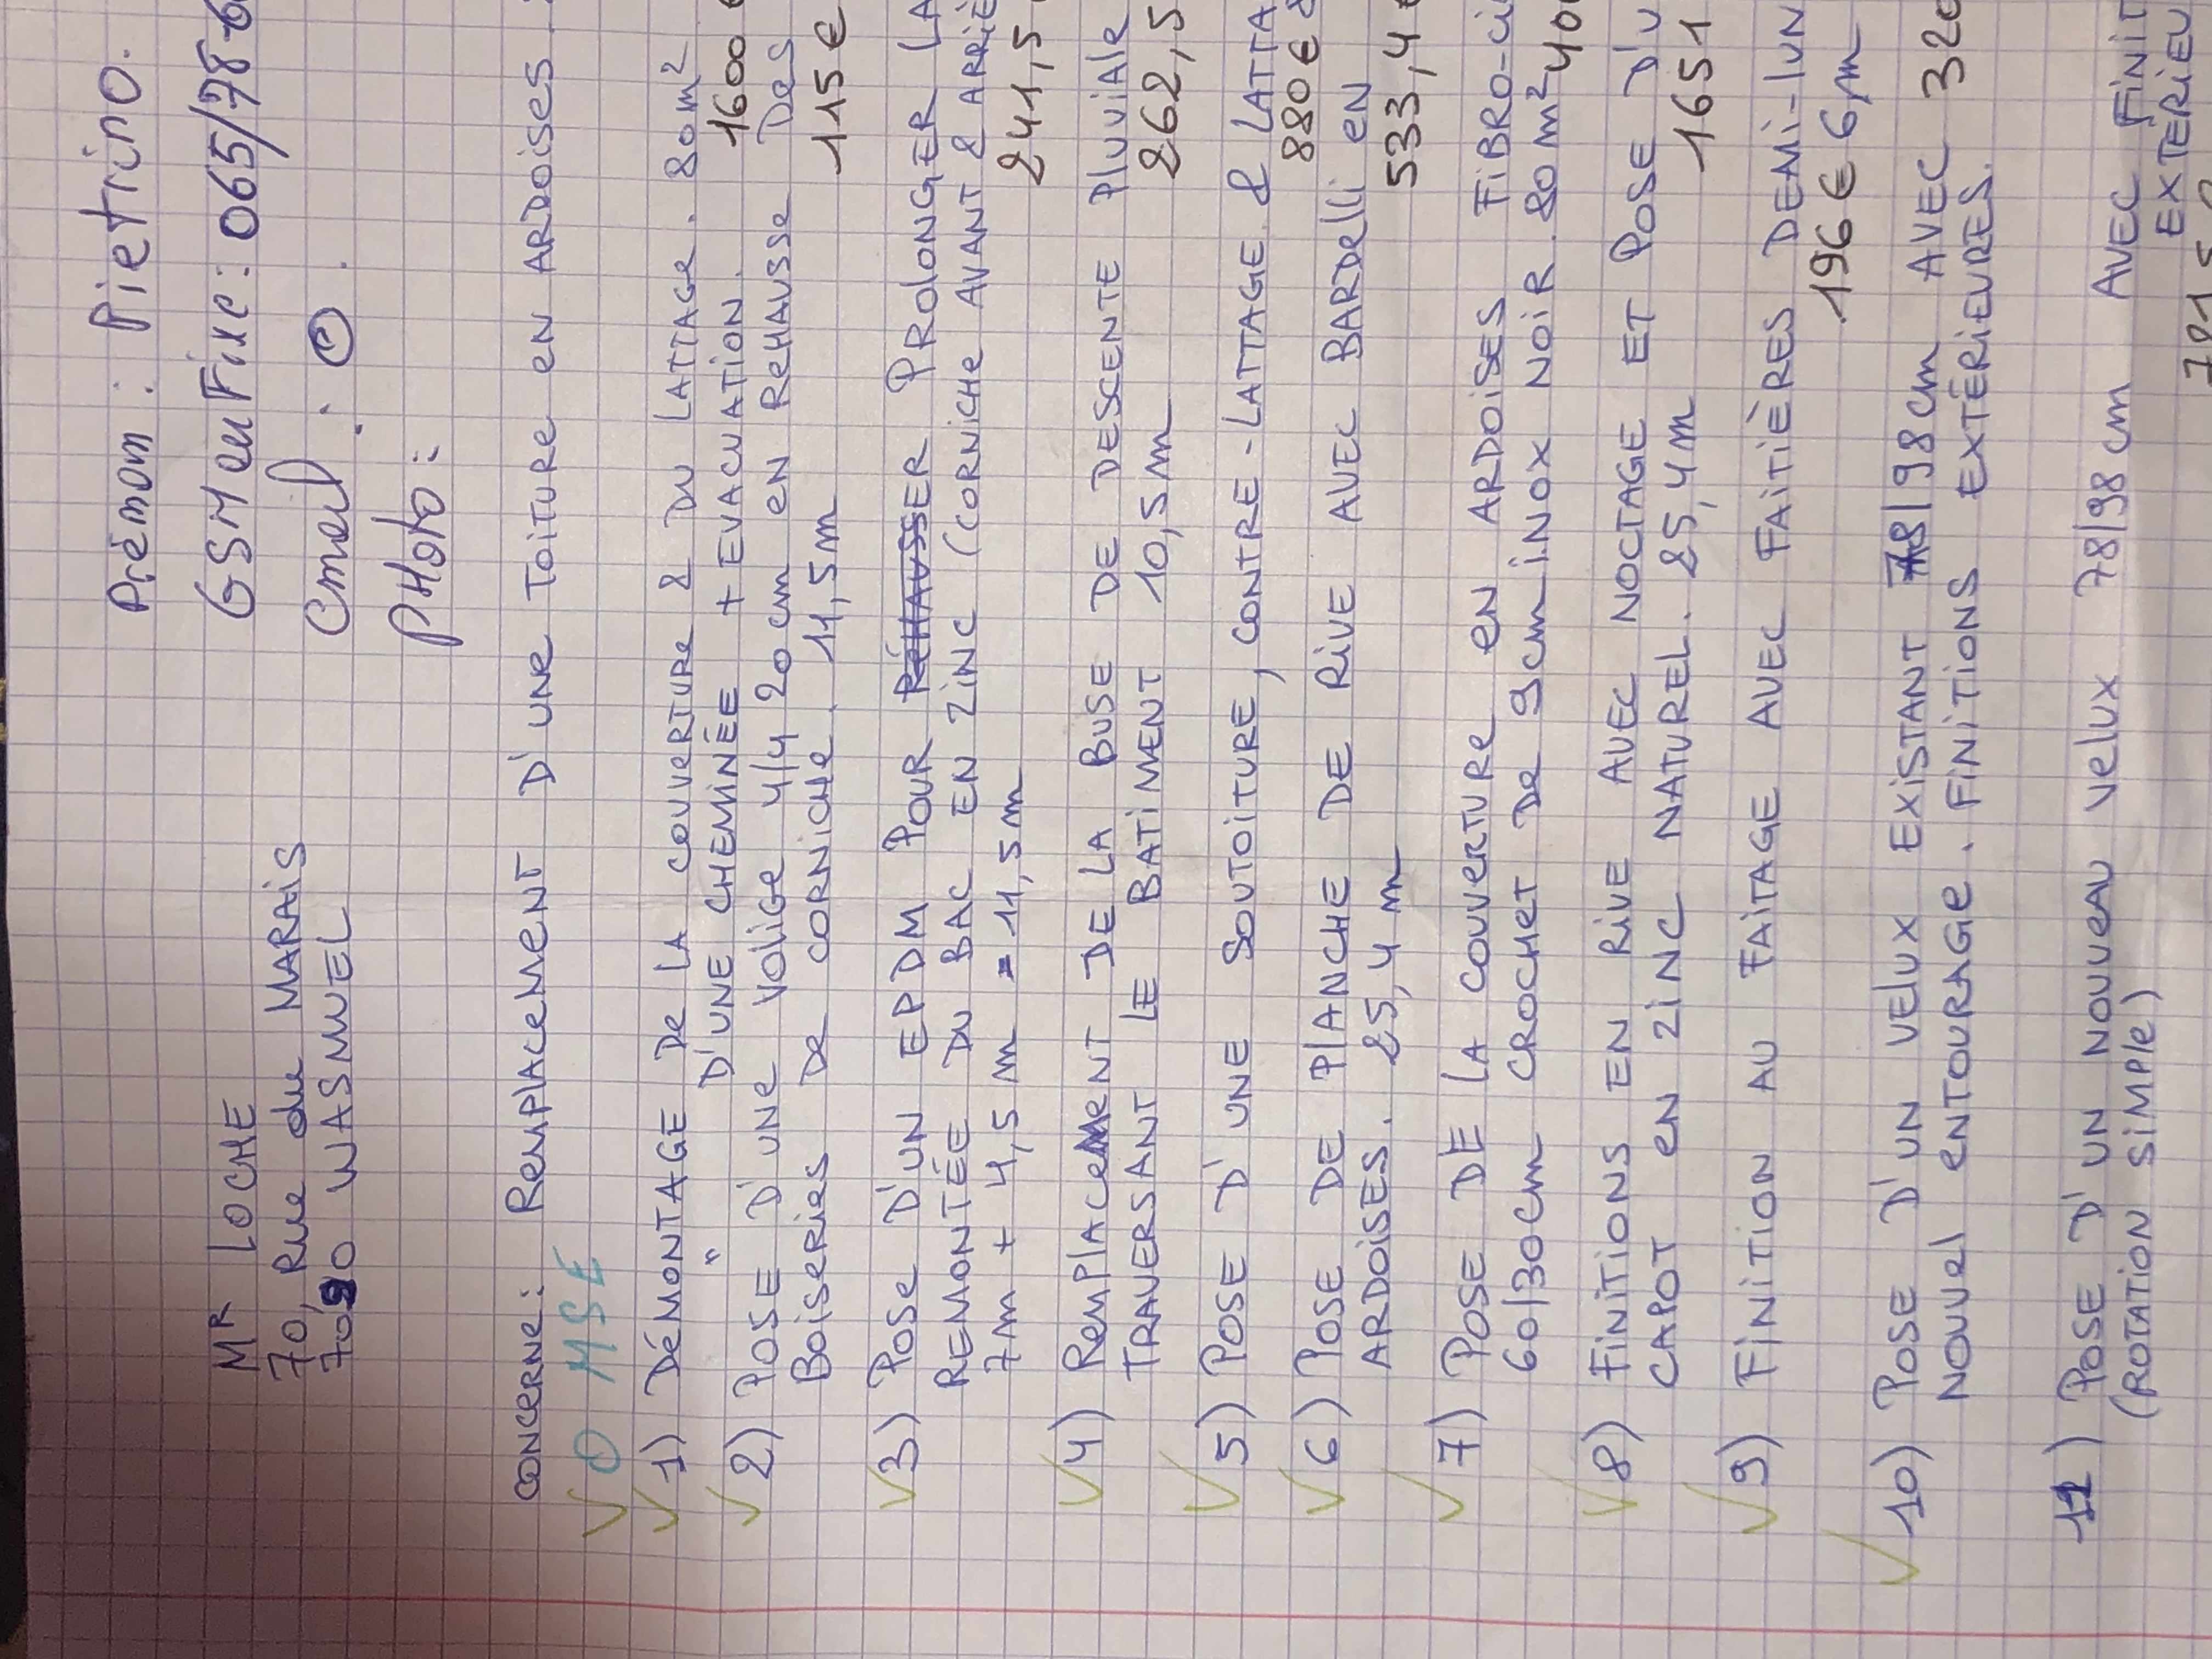 Prénom : Pietrino.
MR LOCHE
GSM ou Fixe : 065/78
70, Rue du MARAIS
Email :
7090 WASMUEL
PHOTO :
CONCERNE : REMPLACEMENT D'UNE TOITURE EN ARDOISES.
O MSE
1) DÉMONTAGE DE LA COUVERTURE & DU LATTAGE. 80m²
" D'UNE CHEMINÉE + EVACUATION. 1600 €
2) POSE D'UNE VOLIGE 4/4 20 cm EN REHAUSSE DES
BOISERIES DE CORNICHE. 11,5m 115 €
3) POSE D'UN EPDM POUR REHAUSSER PROLONGER LA
REMONTÉE DU BAC EN ZINC (CORNICHE AVANT & ARRIÈ
7m + 4,5 m = 11,5m 241,5
4) REMPLACEMENT DE LA BUSE DE DESCENTE PLUVIALE
TRAVERSANT LE BATIMENT 10,5m 262,5
5) POSE D'UNE SOUTOITURE, CONTRE-LATTAGE & LATTA
880 €
6) POSE DE PLANCHE DE RIVE AVEC BARDELLI EN
ARDOISES. 25,4 m 533,4 €
7) POSE DE LA COUVERTURE EN ARDOISES FIBRO-CI
60/30cm CROCHET DE 9cm INOX NOIR. 80m² 400
8) FINITIONS EN RIVE AVEC NOCTAGE ET POSE D'U
CAPOT EN ZINC NATUREL. 25,4m 1651
9) FINITION AU FAITAGE AVEC FAITIÈRES DEMI-LUN
196 € 6m
10) POSE D'UN VELUX EXISTANT 78/98 cm AVEC 320
NOUVEL ENTOURAGE. FINITIONS EXTÉRIEURES.
11) POSE D'UN NOUVEAU VELUX 78/98 cm AVEC FINIT
(ROTATION SIMPLE) EXTÉRIEU